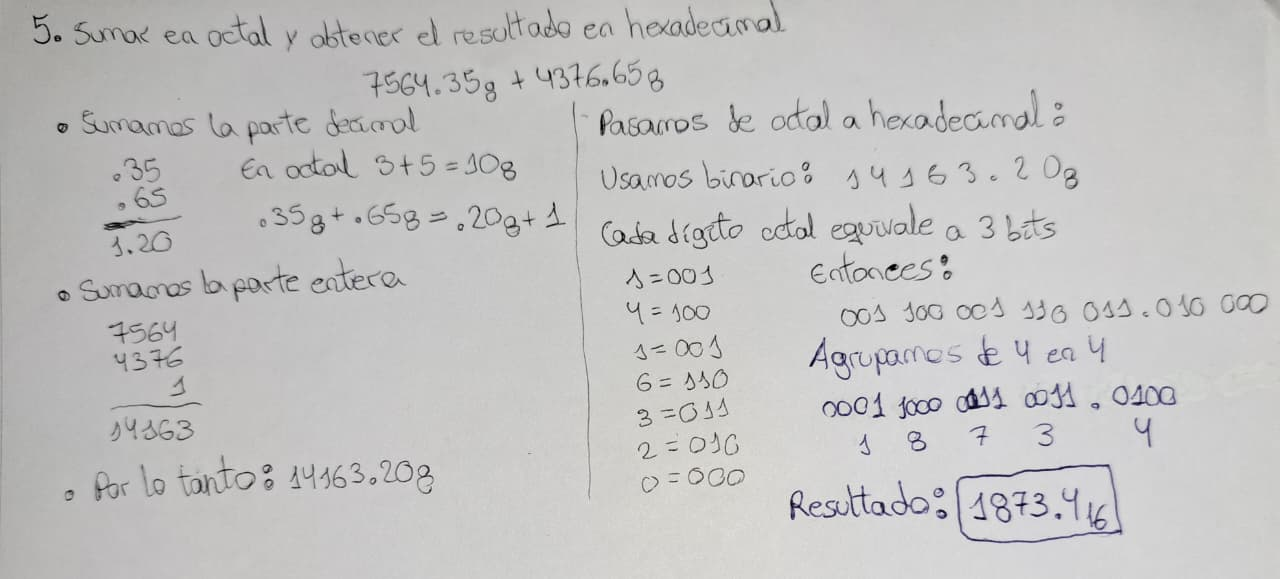 5. Sumar en octal y obtener el resultado en hexadecimal
7564.35₈ + 4376.65₈
• Sumamos la parte decimal
.35
.65
1.20
En octal 3+5=10₈
.35₈+.65₈=.20₈+1
• Sumamos la parte entera
7564
4376
1
14163
• Por lo tanto: 14163.20₈
Pasamos de octal a hexadecimal:
Usamos binario: 14163.20₈
Cada dígito octal equivale a 3 bits
1=001
4=100
1=001
6=110
3=011
2=010
0=000
Entonces:
001 100 001 110 011.010 000
Agrupamos de 4 en 4
0001 1000 0111 0011.0100
1 8 7 3 4
Resultado: 1873.4₁₆